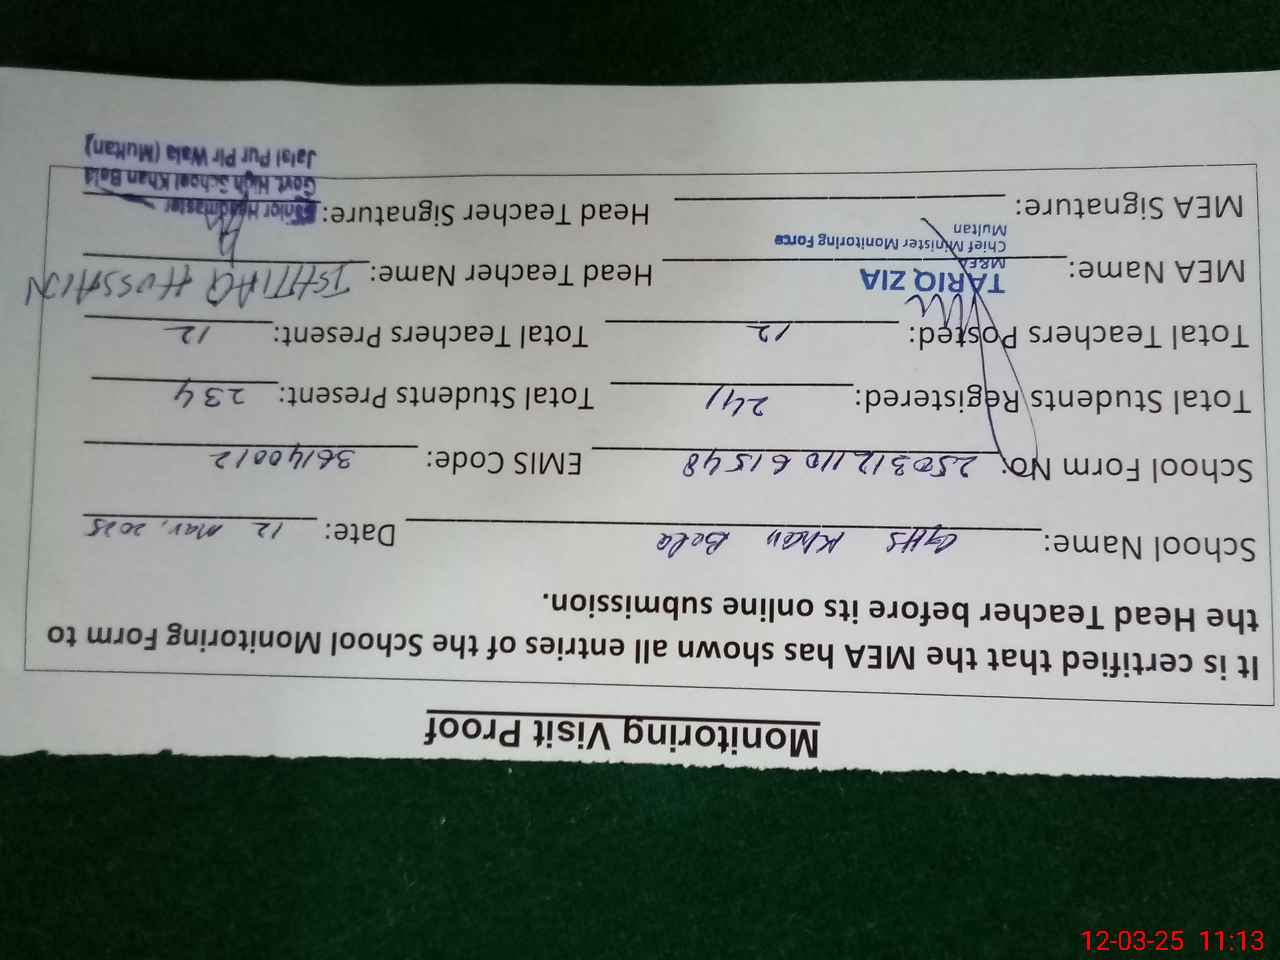 Monitoring Visit Proof
It is certified that the MEA has shown all entries of the School Monitoring Form to
the Head Teacher before its online submission.
School Name: GHS Khan Bela Date: 12 Mar, 2025
School Form NO: 25031211061548 EMIS Code: 36140012
Total Students Registered: 241 Total Students Present: 234
Total Teachers Posted: 12 Total Teachers Present: 12
MEA Name: TARIQ ZIA Head Teacher Name: ISHTIAQ HUSSAIN
M&EA
Chief Minister Monitoring Force
Multan
MEA Signature: Head Teacher Signature:
Senior Headmaster
Govt. High School Khan Bela
Jalal Pur Pir Wala (Multan)
12-03-25 11:13